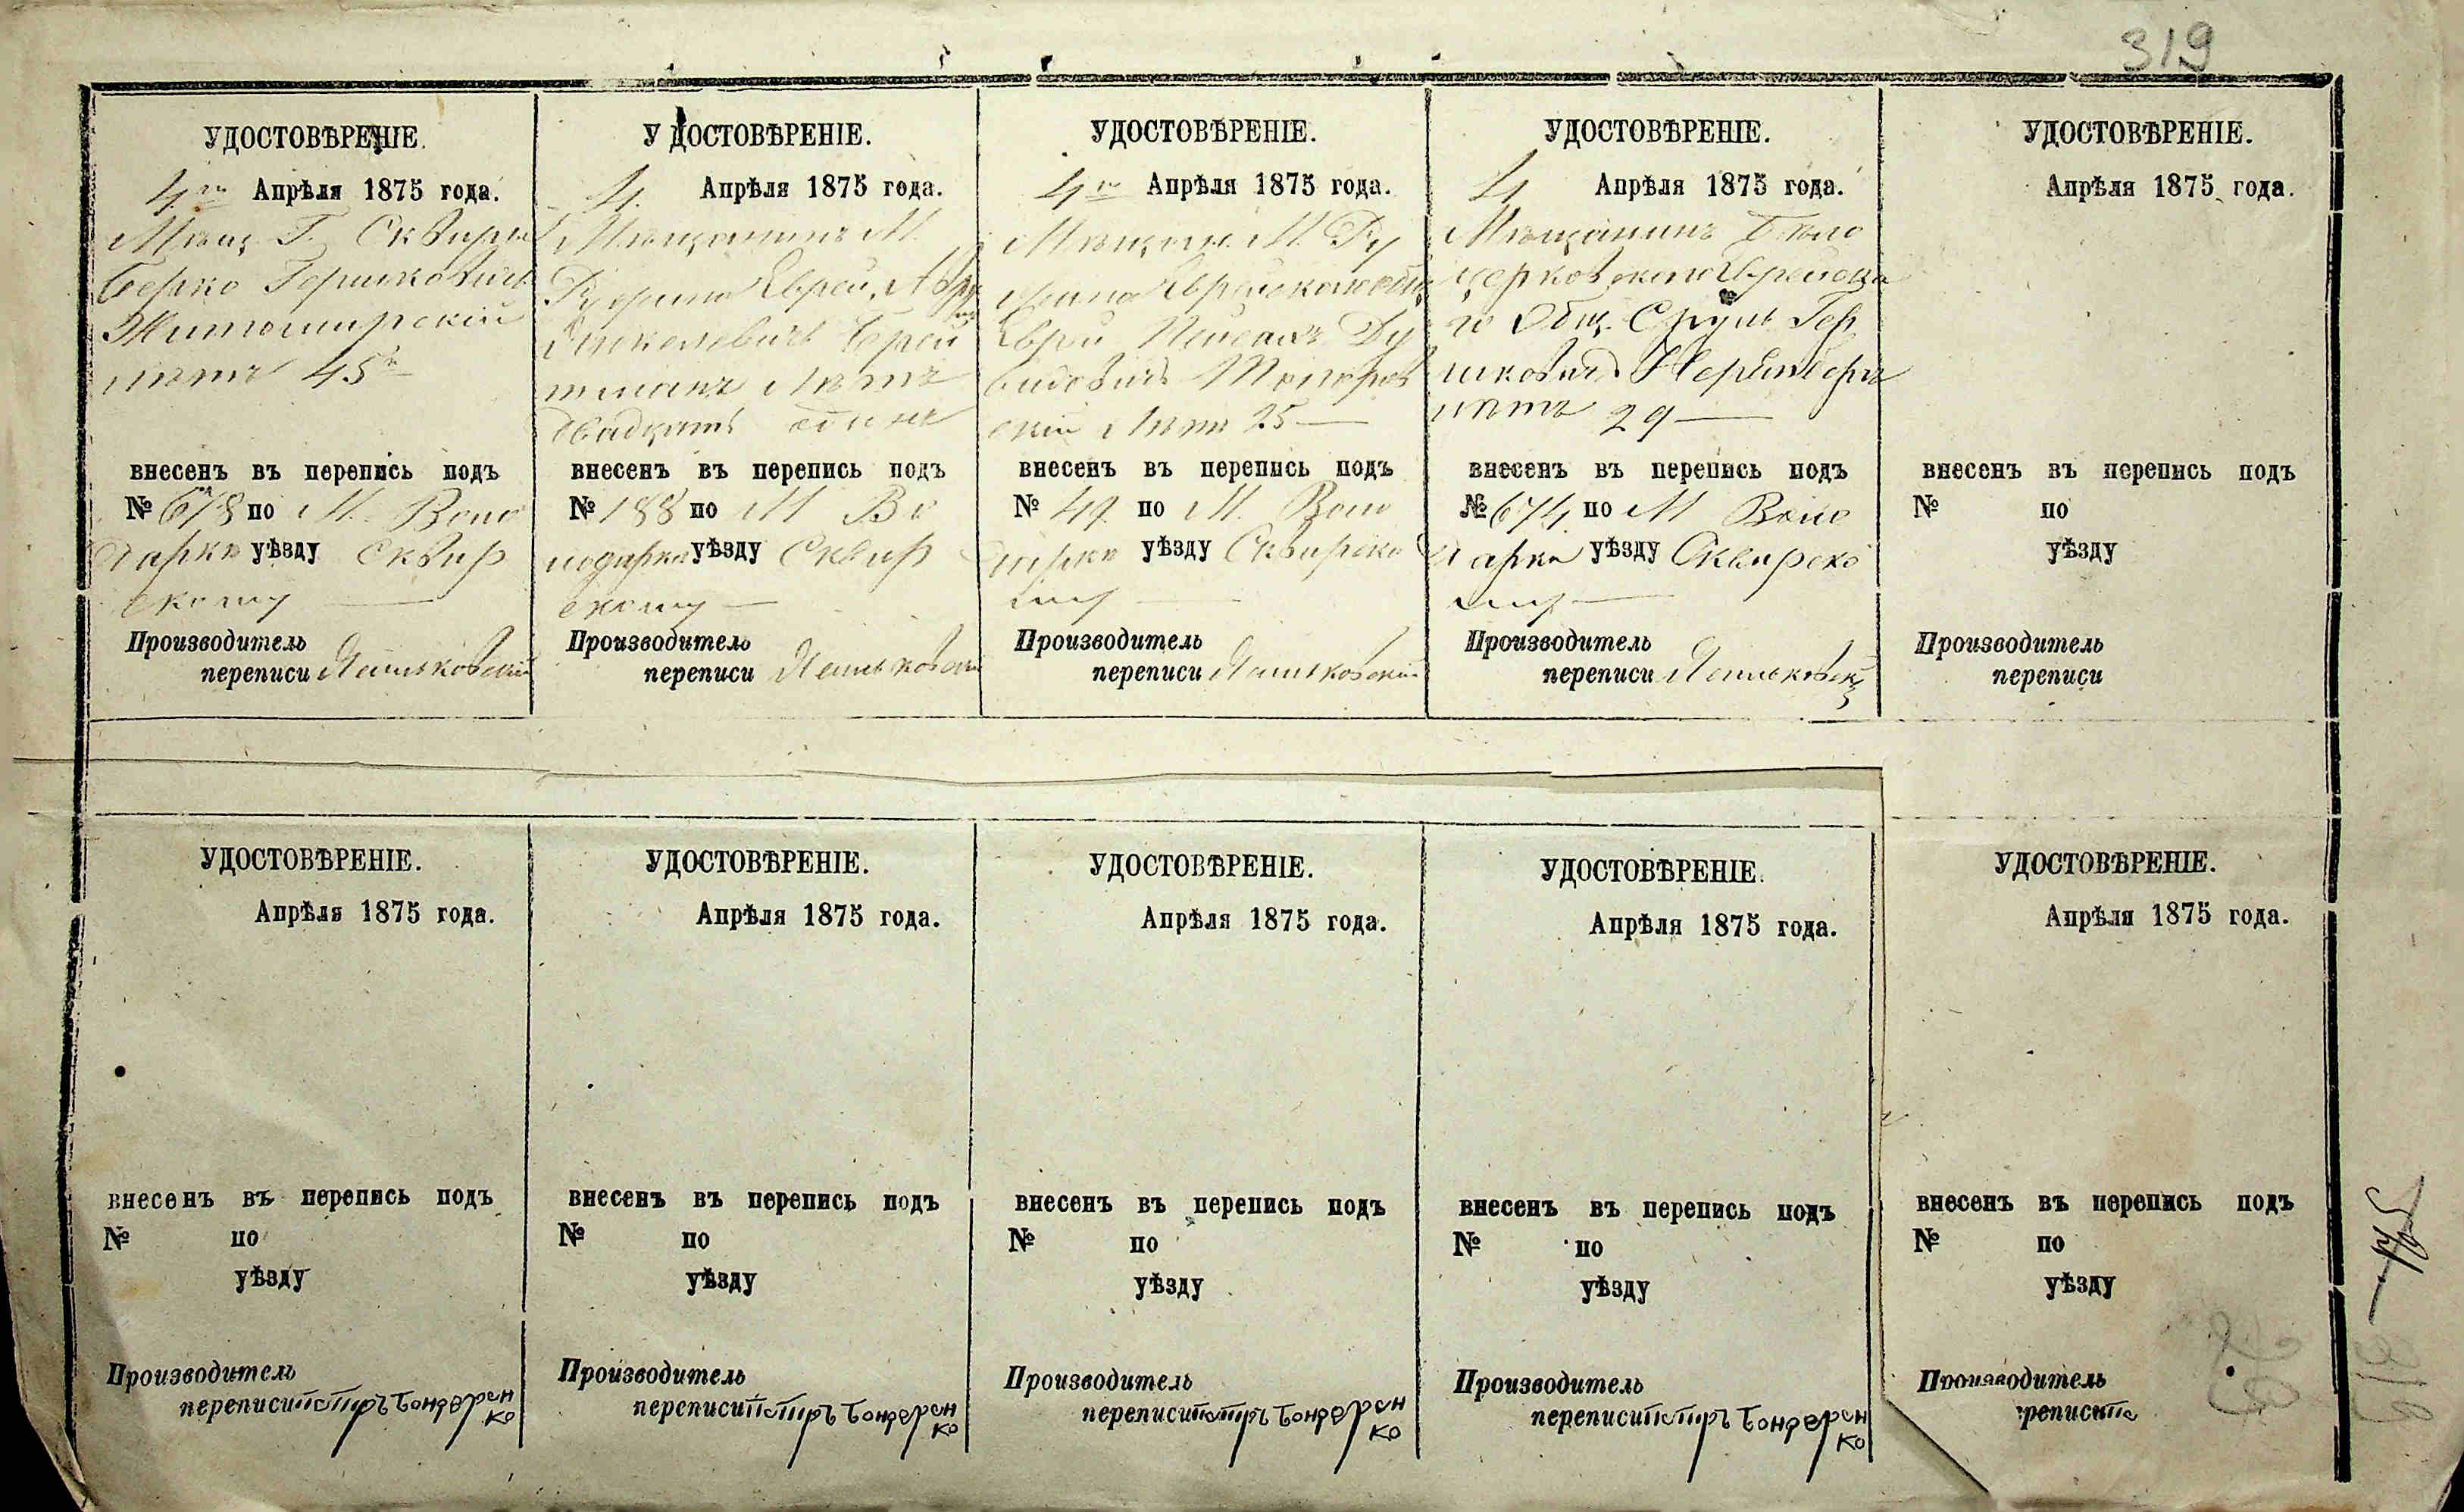 319
УДОСТОВѢРЕНІЕ.
4го Апрѣля 1875 года.
Мѣщ. Г. Сквиры
Берко Гершковичъ
Житомирскій
лѣтъ 45
внесенъ въ перепись подъ
№ 678 по М. Воло
даркѣ уѣзду Сквир
скому
Производитель
переписи
УДОСТОВѢРЕНІЕ.
4 Апрѣля 1875 года.
Мѣщанинъ М.
Еврей
лѣтъ
двадцать одинъ
внесенъ въ перепись подъ
№ 188 по М Во
лодаркѣ уѣзду Сквир
скому
Производитель
переписи
УДОСТОВѢРЕНІЕ.
4го Апрѣля 1875 года.
Мѣщан. М. Ру
жина Еврейскаго общ
Еврей Пейсахъ Ду
видовичъ Топоров
скій Лѣтъ 25
внесенъ въ перепись подъ
№ 49 по М. Воло
даркѣ уѣзду Сквирско
му
Производитель
переписи
УДОСТОВѢРЕНІЕ.
4 Апрѣля 1875 года.
Мѣщанинъ Бѣло
церковскаго Еврейска
го Общ. Сруль Гер
шковичъ
лѣтъ 29
внесенъ въ перепись подъ
№ 674 по М Воло
дарка уѣзду Сквирско
му
Производитель
переписи
УДОСТОВѢРЕНІЕ.
Апрѣля 1875 года.
внесенъ въ перепись подъ
№ по
уѣзду
Производитель
переписи
УДОСТОВѢРЕНІЕ.
Апрѣля 1875 года.
внесенъ въ перепись подъ
№ по
уѣзду
Производитель
переписи Петръ Бондарен
ко
УДОСТОВѢРЕНІЕ.
Апрѣля 1875 года.
внесенъ въ перепись подъ
№ по
уѣзду
Производитель
переписи Петръ Бондарен
ко
УДОСТОВѢРЕНІЕ.
Апрѣля 1875 года.
внесенъ въ перепись подъ
№ по
уѣзду
Производитель
переписи Петръ Бондарен
ко
УДОСТОВѢРЕНІЕ.
Апрѣля 1875 года.
внесенъ въ перепись подъ
№ по
уѣзду
Производитель
переписи Петръ Бондарен
ко
УДОСТОВѢРЕНІЕ.
Апрѣля 1875 года.
внесенъ въ перепись подъ
№ по
уѣзду
Производитель
реписи Пе